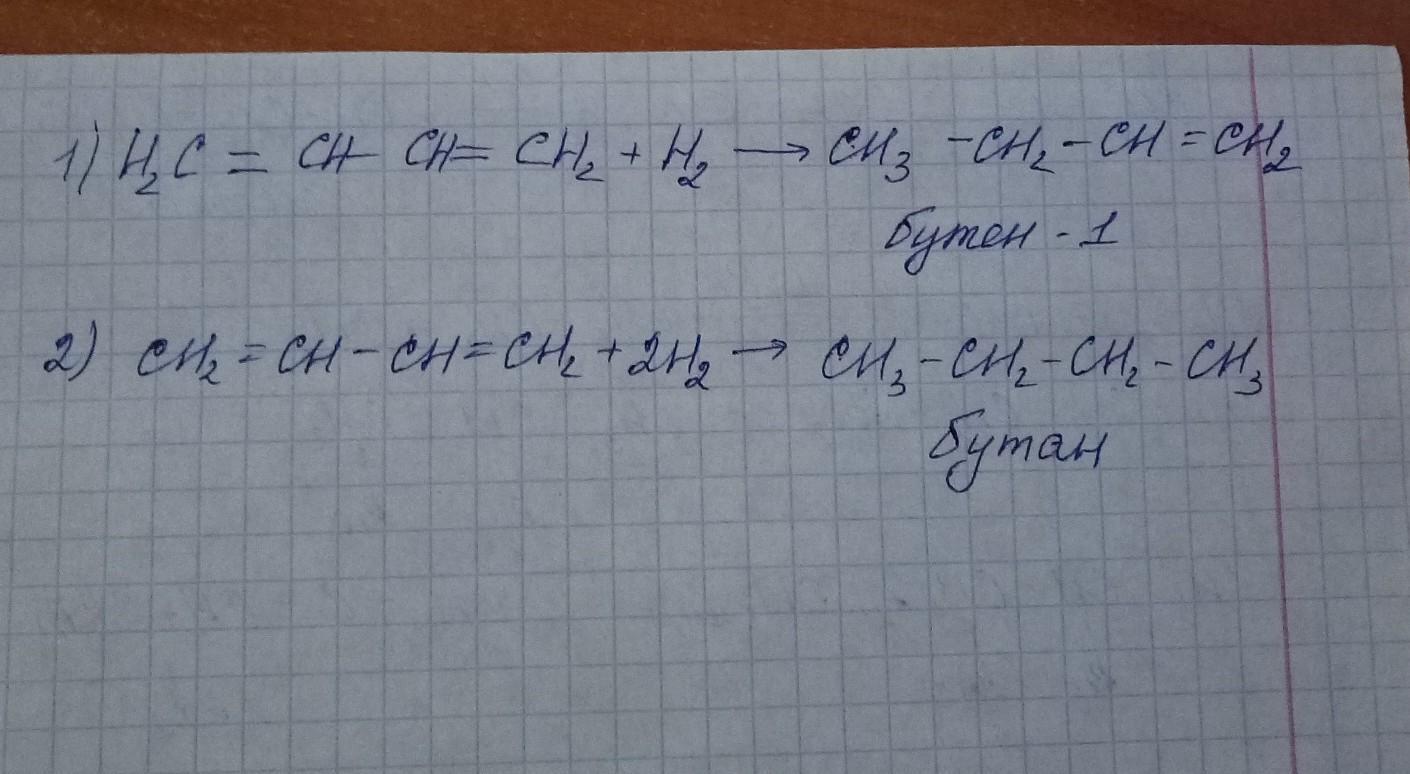 1) H₂C = CH - CH = CH₂ + H₂ → CH₃ - CH₂ - CH = CH₂
бутен - 1
2) CH₂ = CH - CH = CH₂ + 2H₂ → CH₃ - CH₂ - CH₂ - CH₃
бутан